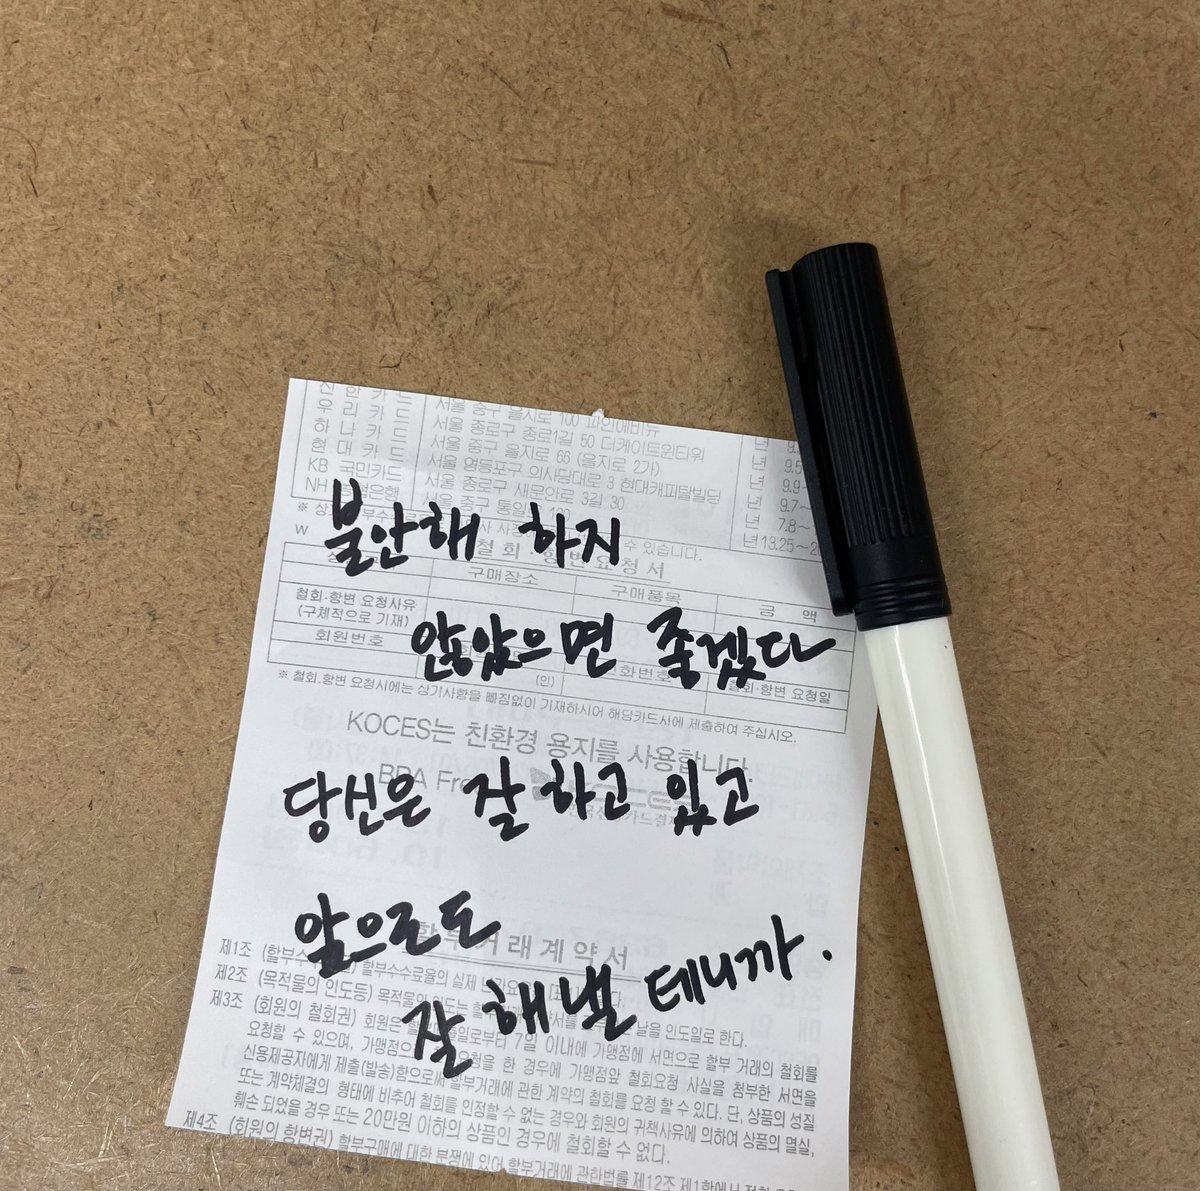 신한카드
우리카드 서울 중구 을지로 100 파인에비뉴
하나카드 서울 종로구 종로1길 50 더케이트윈타워
현대카드 서울 중구 을지로 66 (을지로 2가)
KB 국민카드 서울 영등포구 의사당대로 3 현대캐피탈빌딩
NH 서울 종로구 새문안로 3길 30
서울 중구 통일로 120
불안해 하지
철회·항변요청서
구매장소 구매품목 금 액
철회·항변 요청사유
(구체적으로 기재)
않았으면 좋겠다
회원번호 (인) 화번호 철회·항변 요청일
※ 철회.항변 요청시에는 상기사항을 빠짐없이 기재하시어 해당카드사에 제출하여 주십시오.
KOCES는 친환경 용지를 사용합니다.
당신은 잘하고 있고
앞으로도
할부거래계약서
잘 해낼 테니까.
제1조 (할부수수료율) 할부수수료율의 실제
제2조 (목적물의 인도등) 목적물의 인도는 날을 인도일로 한다.
제3조 (회원의 철회권) 회원은 일로부터 7일 이내에 가맹점에 서면으로 할부 거래의 철회를
요청할 수 있으며, 가맹점으 요청을 한 경우에 가맹점앞 철회요청 사실을 첨부한 서면을
신용제공자에게 제출(발송)함으로써 할부거래에 관한 계약의 철회를 요청 할 수 있다. 단, 상품의 성질
또는 계약체결의 형태에 비추어 철회를 인정할 수 없는 경우와 회원의 귀책사유에 의하여 상품의 멸실,
훼손 되었을 경우 또는 20만원 이하의 상품인 경우에 철회할 수 없다.
제4조 (회원의 항변권) 할부구매에 대한 분쟁에 있어 할부거래에 관한법률 제12조 제1항에서